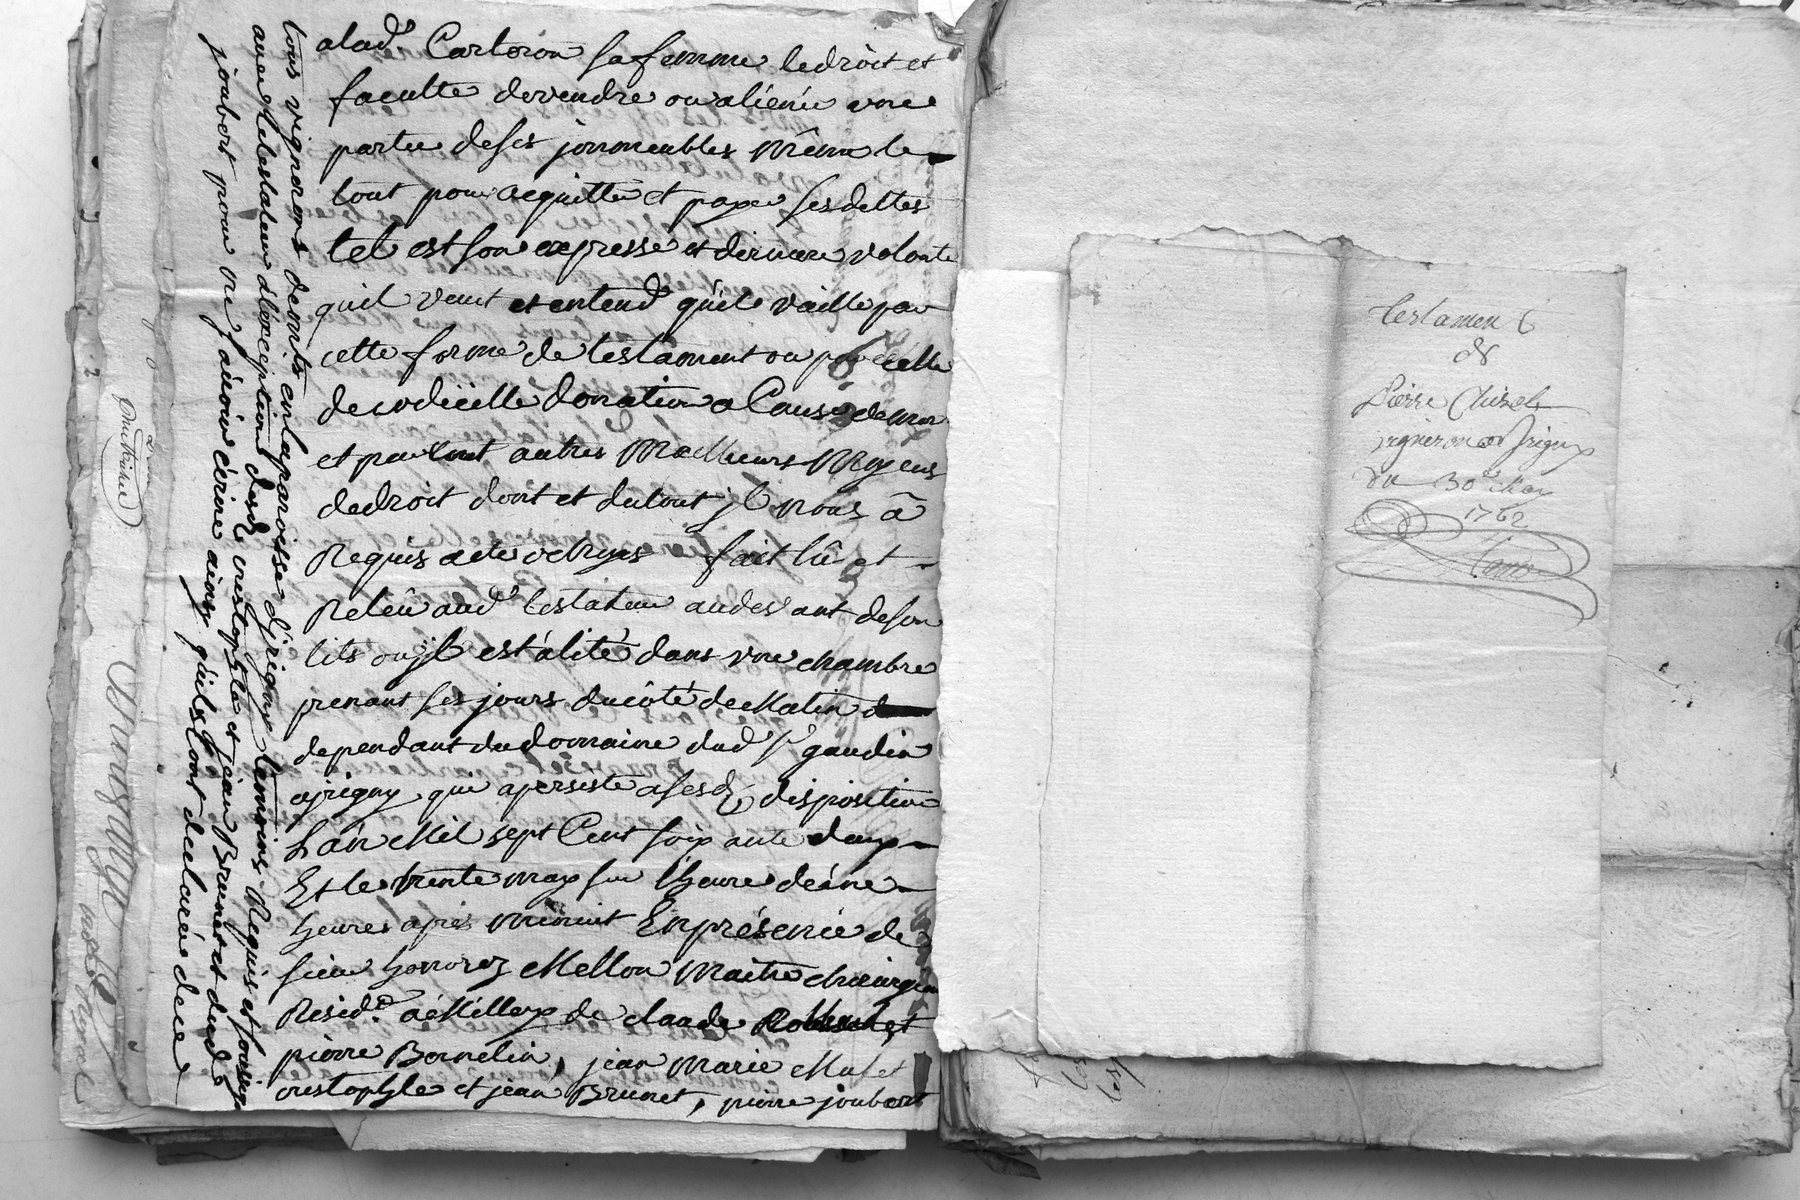 alad. Carteron sa femme le droit et
faculté de vendre ou aliéner une
partie de ses jmmeubles Même le
tout pour acquitter et payer ses dettes
tel est son expresse et derniere volonté
quil veut et entend qu'il vaille par
cette forme de testament ou par celle
de codicille donation a Cause de mor
et par tout autres Meilleurs Moyens
de droit dont et du tout jl nous â
Requis acte octroyé fait lû et
Relêu aud. testateur audevant de son
lits ou jl est alité dans une chambre
prenant ses jours du côté de Matin
dependant du domaine dud. Sr gaudin
ajrigny qui a persisté a sesd. disposition
L'an Mil sept Cent soixante deux
Et le trente may sur l'heure de
heures après minuit En présence de
sieur honorez Mellon Maitre chirurgien
Resid. a Millery de claude et
pierre Bornelin, jean Marie Mulet
cristophle et jean Brunet, pierre joubert
tous vignerons demts en la paroisse d'jrigny temoins Requis et soussigné
avec le testateur a l'exception desd. cristophle et jean Brunet et dud.
joubert pour ne sçavoir écrire ainsy qu'ils ont declaré de ce
testament
de
Pierre
vigneron a Jrigny
du 30e May
1762